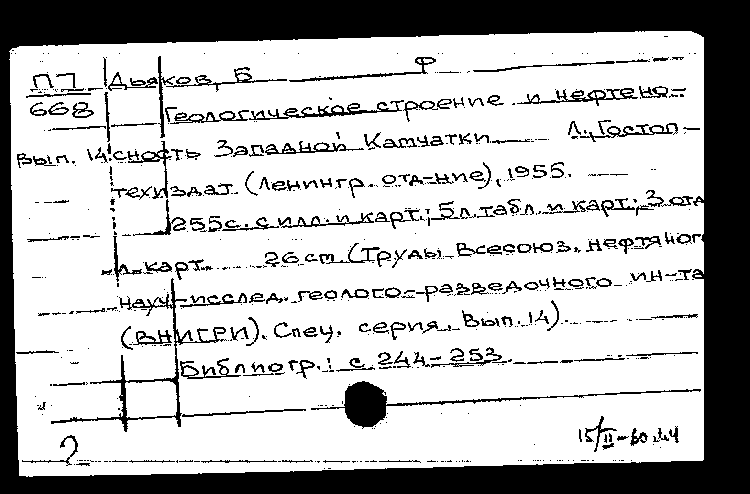 ПП Дьяков, Б Ф
668 Геологическое строение и нефтено-
Вып. 14 сность Западной Камчатки Л., Гостоп-
техиздат. (Ленингр. отд-ние), 1955.
255с. с илл. и карт.; 5л. табл. и карт.; 3 отд
л. карт. 26 cm. (Труды Всесоюз. нефтяног
науч-исслед. геолого-разведочного ин-та
(ВНИГРИ). Спец. серия. Вып. 14).
Библиогр.: с 244-253.
2